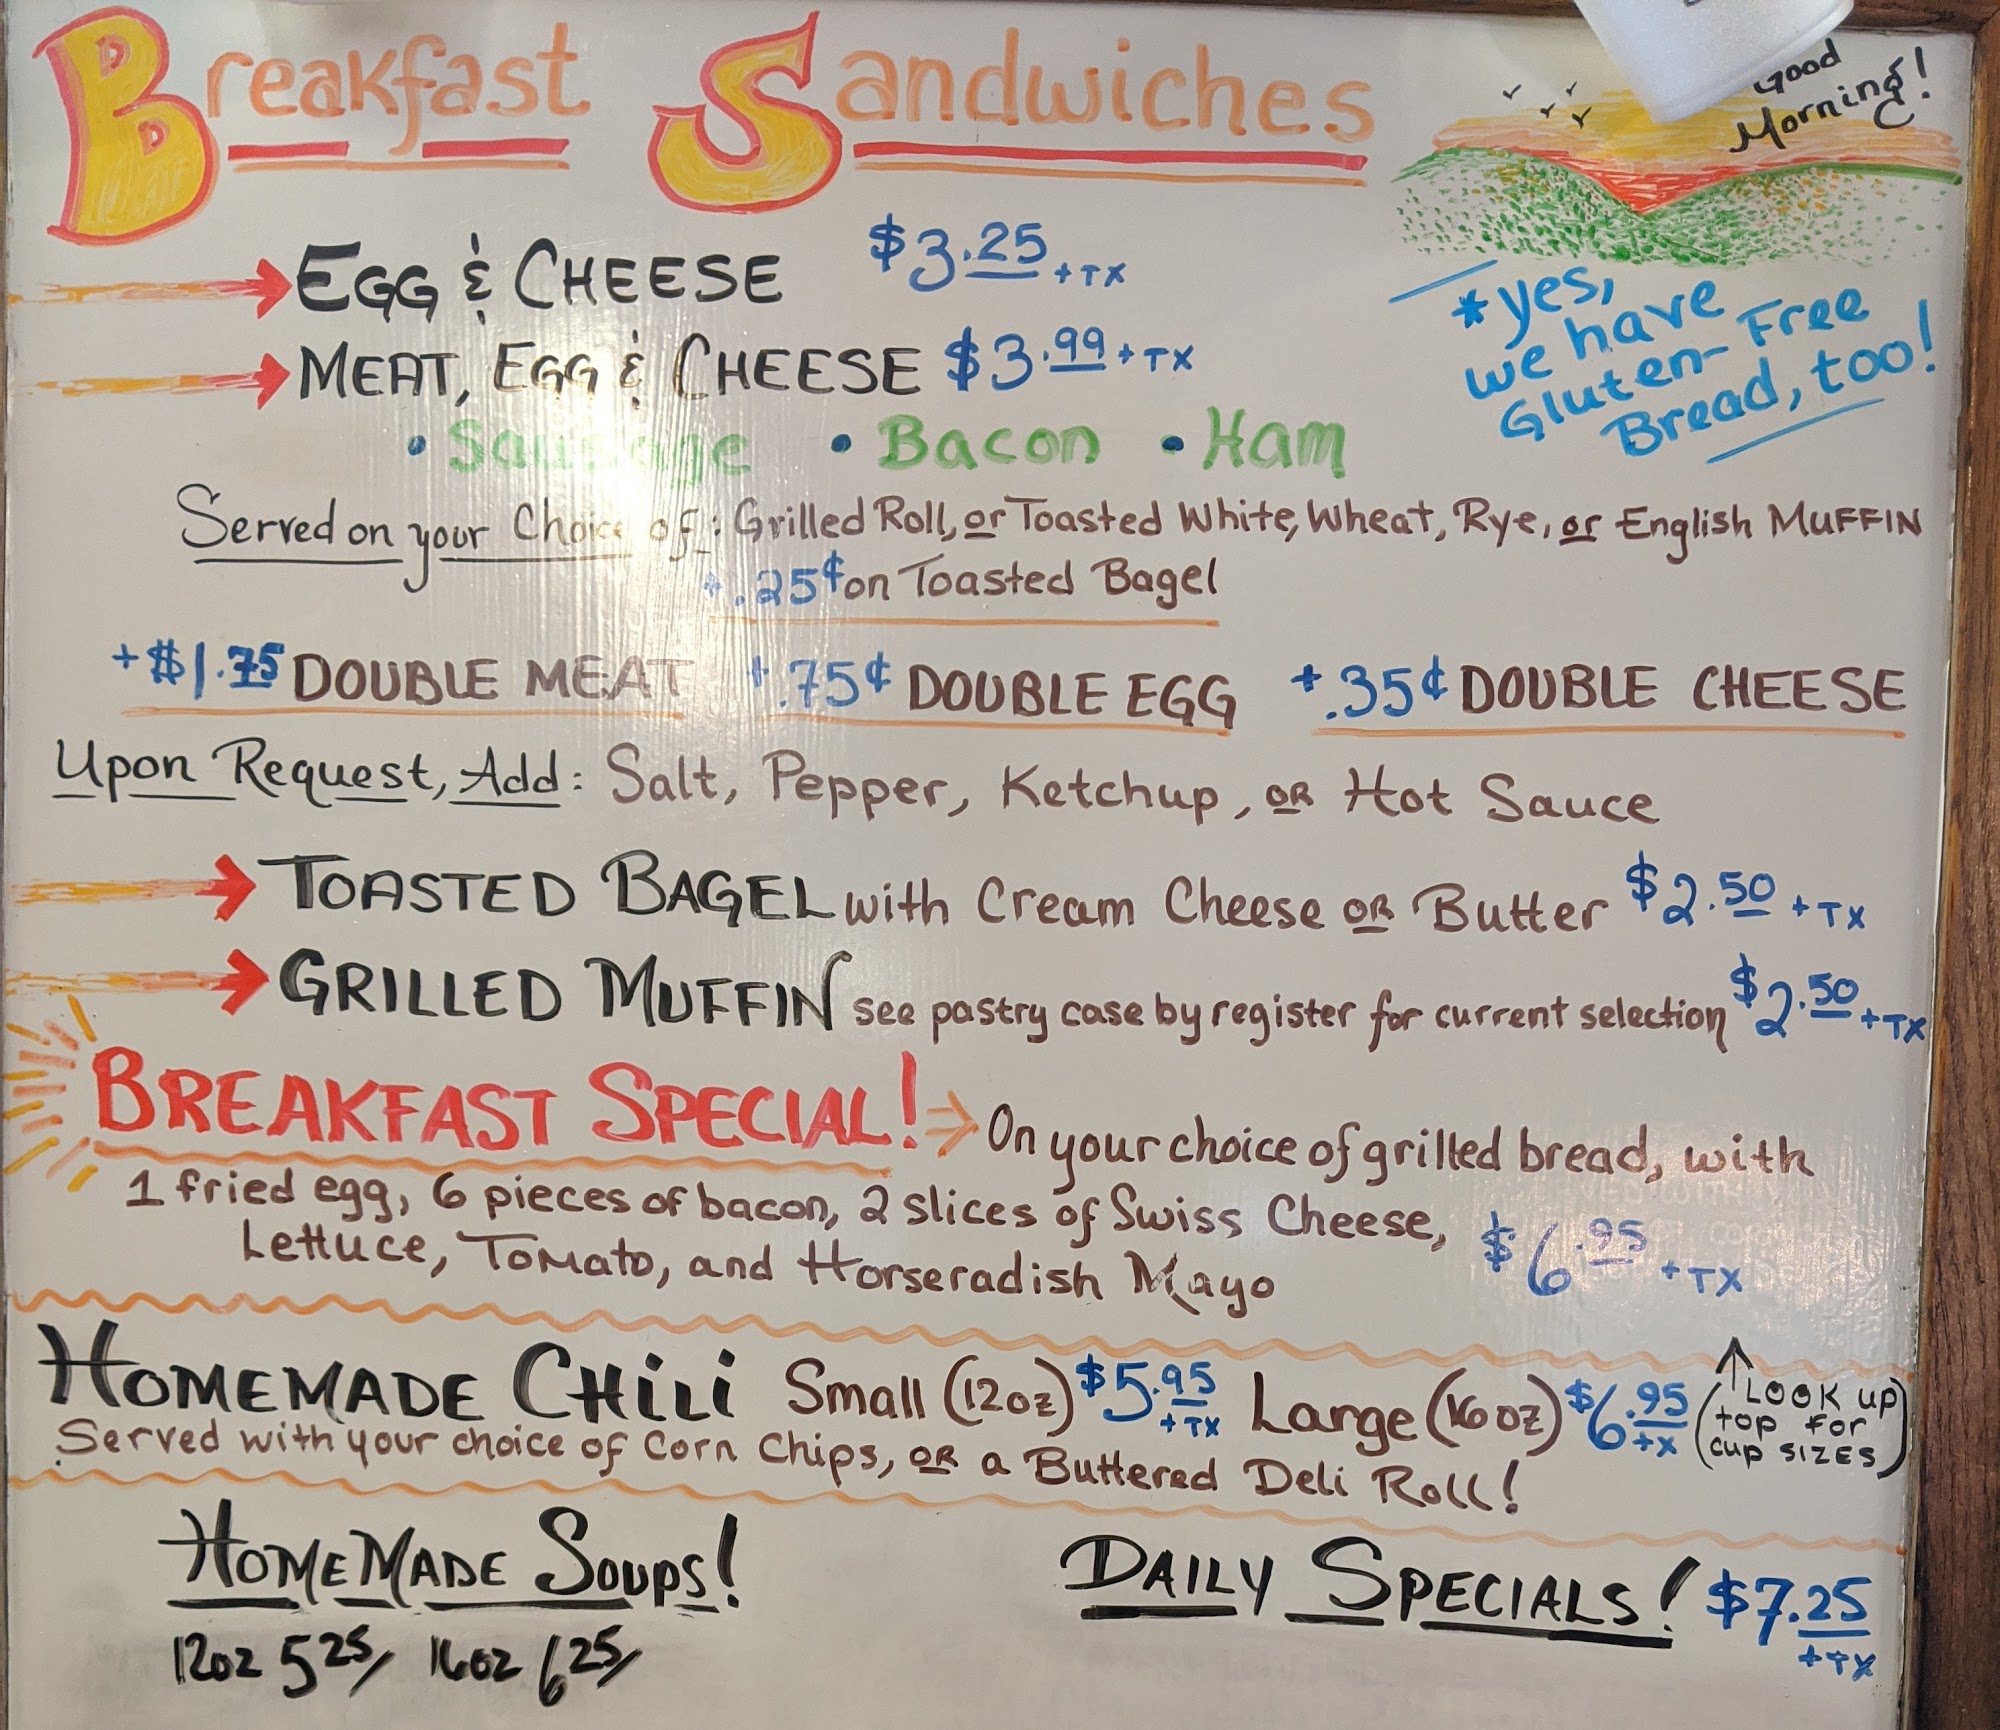 Breakfast Sandwiches
Good
Morning!
EGG & CHEESE $3.25 + TX
MEAT, EGG & CHEESE $3.99 + TX
• Sausage • Bacon • Ham
*yes,
we have
Gluten-Free
Bread, too!
Served on your Choice of: Grilled Roll, or Toasted White, Wheat, Rye, or English MUFFIN
+ .25¢ on Toasted Bagel
+ $1.75 DOUBLE MEAT + .75¢ DOUBLE EGG + .35¢ DOUBLE CHEESE
Upon Request, Add: Salt, Pepper, Ketchup, OR Hot Sauce
TOASTED BAGEL with Cream Cheese OR Butter $2.50 + TX
GRILLED MUFFIN see pastry case by register for current selection $2.50 + TX
BREAKFAST SPECIAL! On your choice of grilled bread, with
1 fried egg, 6 pieces of bacon, 2 slices of Swiss Cheese,
Lettuce, Tomato, and Horseradish Mayo $6.95 + TX
HOMEMADE CHILI Small (12oz) $5.95 + TX Large (16oz) $6.95 + TX
(LOOK up
top for
cup SIZES)
Served with your choice of Corn Chips, OR a Buttered Deli Roll!
HOMEMADE SOUPS!
12oz 5 25/ 16oz 6 25/
DAILY SPECIALS! $7.25
+ TX